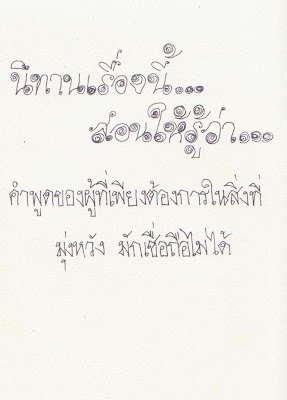 นิทานเรื่องนี้....
สอนให้รู้ว่า...
คำพูดของผู้ที่เพียงต้องการในสิ่งที่
มุ่งหวัง มักเชื่อถือไม่ได้